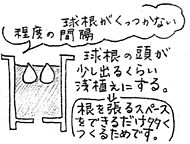 球根がくっつかない
程度の間隔
球根の頭が
少し出るくらい
浅植えにする。
根を張るスペース
をできるだけ多く
つくるためです。